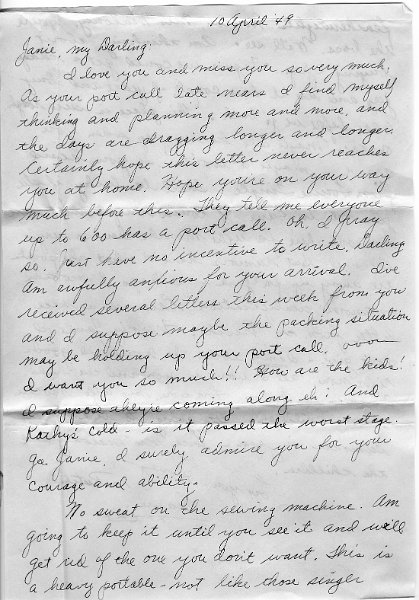 10 April '49
Janie, my Darling:
I love you and miss you so very much,
As your port call date nears I find myself
thinking and planning more and more, and
the days are dragging longer and longer.
Certainly hope this letter never reaches
you at home. Hope you're on your way
much before this. They tell me everyone
up to 600 has a port call. Oh, I pray
so. Just have no incentive to write, Darling
Am awfully anxious for your arrival. I've
received several letters this week from you
and I suppose maybe the packing situation
may be holding up your port call,
I want you so much!! How are the kids?
I suppose they're coming along eh? And
Kathy's cold - is it passed the worst stage.
Ga Janie, I surely admire you for your
courage and ability.
No sweat on the sewing machine. Am
going to keep it until you see it and will
get rid of the one you don't want. This is
a heavy portable - not like those singer